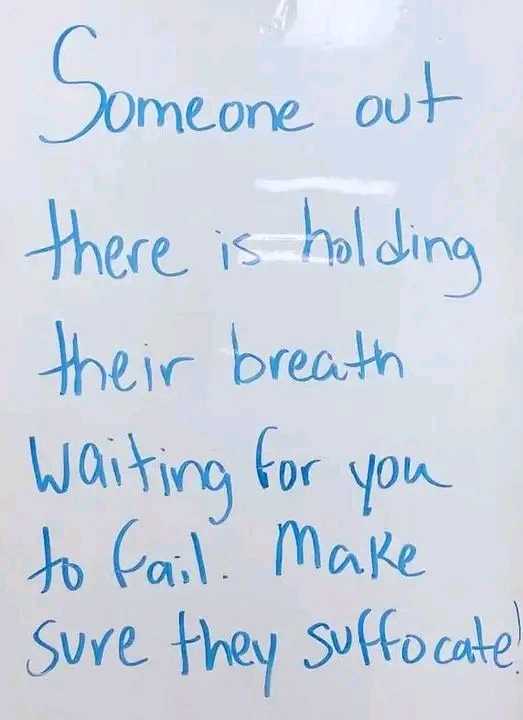 Someone out
there is holding
their breath
Waiting for you
to fail. Make
sure they suffocate!